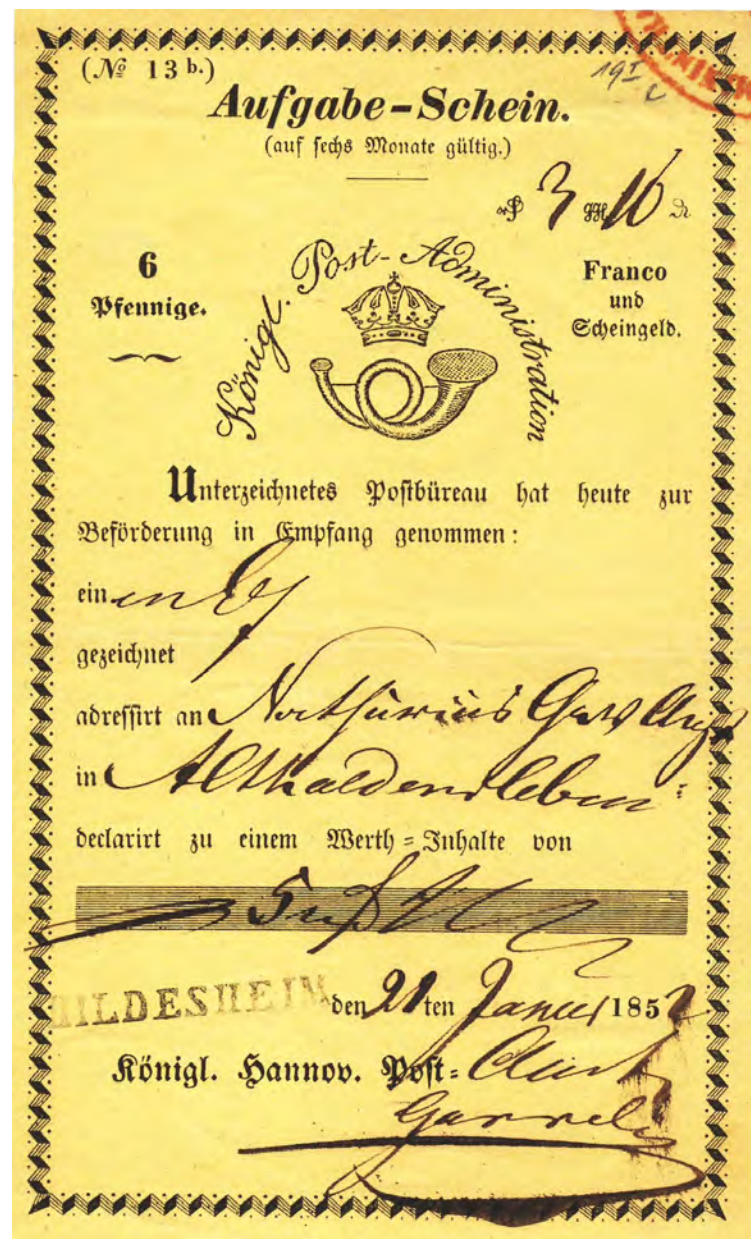 (№ 13 b.)
Aufgabe-Schein.
(auf sechs Monate gültig.)
3 16
6
Pfennige.
Königl. Post-Administration
Franco
und
Scheingeld.
Unterzeichnetes Postbüreau hat heute zur
Beförderung in Empfang genommen:
ein
gezeichnet
adressirt an Nathusius
in Althaldensleben
declarirt zu einem Werth-Inhalte von
HILDESHEIM den 21ten Januar 1852
Königl. Hannov. Post-